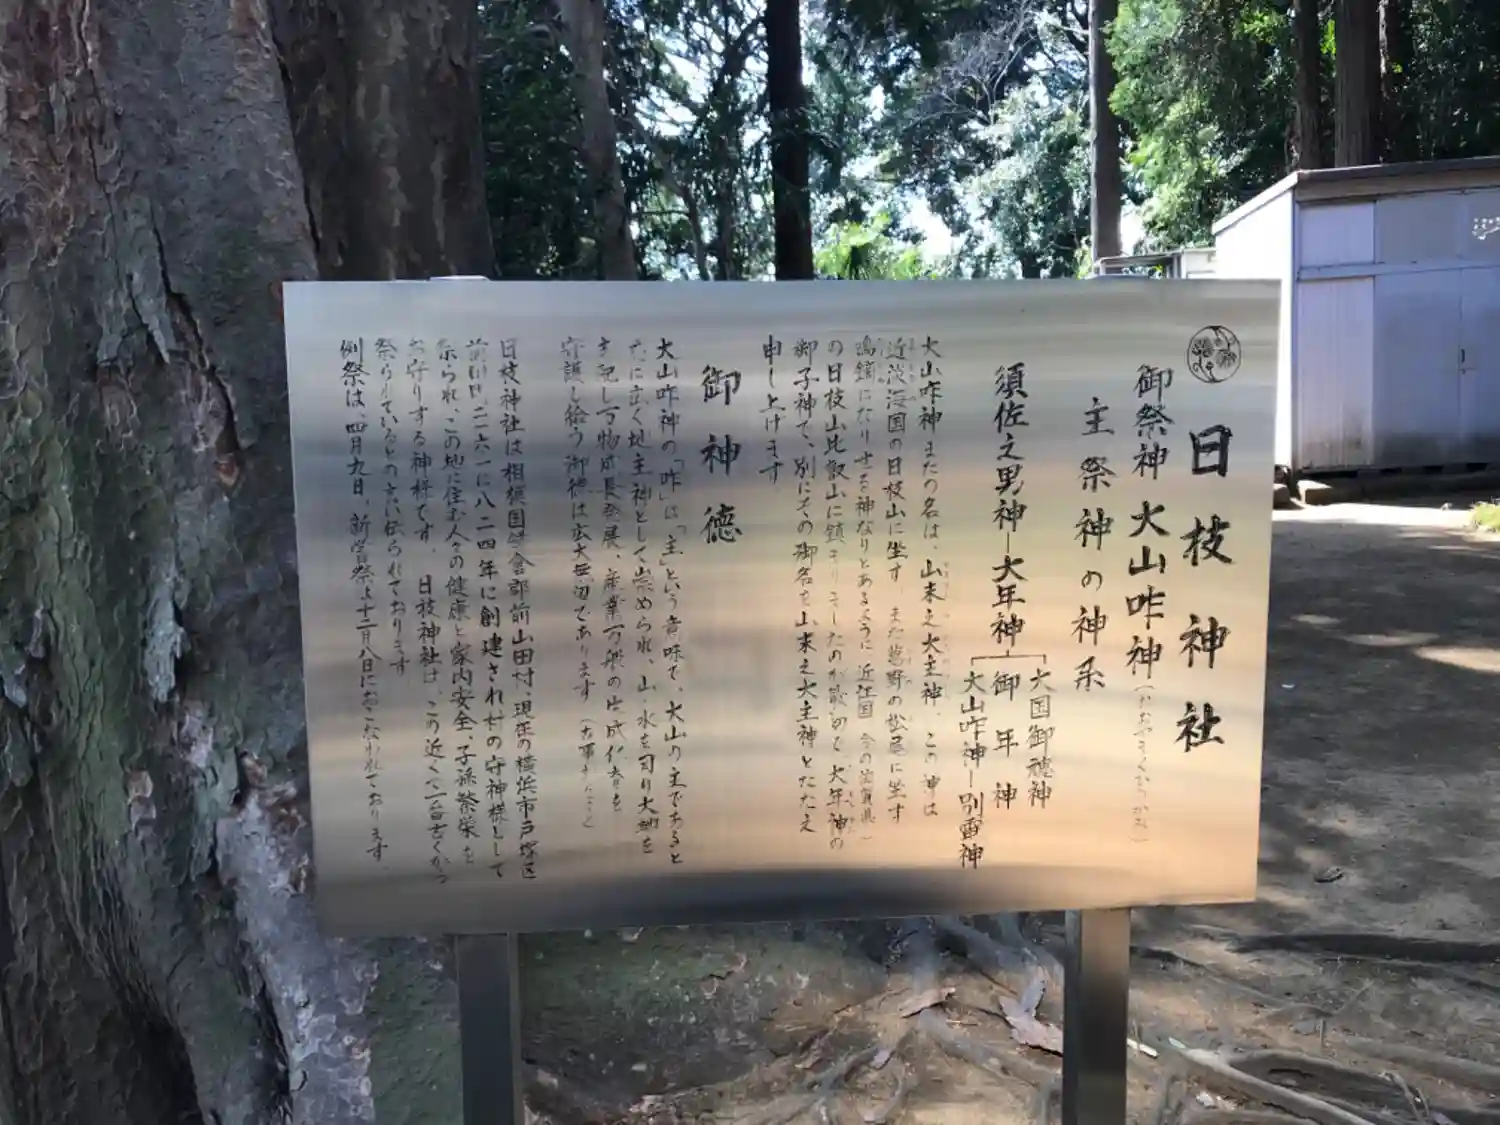 日枝神社
御祭神 大山咋神（おおやまくひのかみ）
主祭神の神系
須佐之男神―大年神
大国御魂神
御年神
大山咋神―別雷神
大山咋神またの名は、山末之大主神、この神は
近淡海国の日枝山に坐す、また葛野の松尾に坐す
鳴鏑になりせる神なりとあるように近江国 今の滋賀県）
の日枝山比叡山に鎮まりましたのが最初で、大年神の
御子神で、別にその御名を山末之大主神とたたえ
申し上げます。
御神徳
大山咋神の「咋」は「主」という意味で、大山の主であると
に広く地主神として崇められ、山・水を司り大地を
支配し万物成長発展、産業万般の生成化育を
守護し給う御徳は広大無辺であります
日枝神社は相模国鎌倉郡前山田村、現在の横浜市戸塚区
二六一に八二四年に創建され村の守神様として
祭られ、この地に住む人々の健康と家内安全、子孫繁栄を
お守りする神様です。日枝神社は、この近くで一番古くから
祭られているとの言い伝えられております
例祭は、四月九日、新嘗祭は十二月八日におこなわれております。